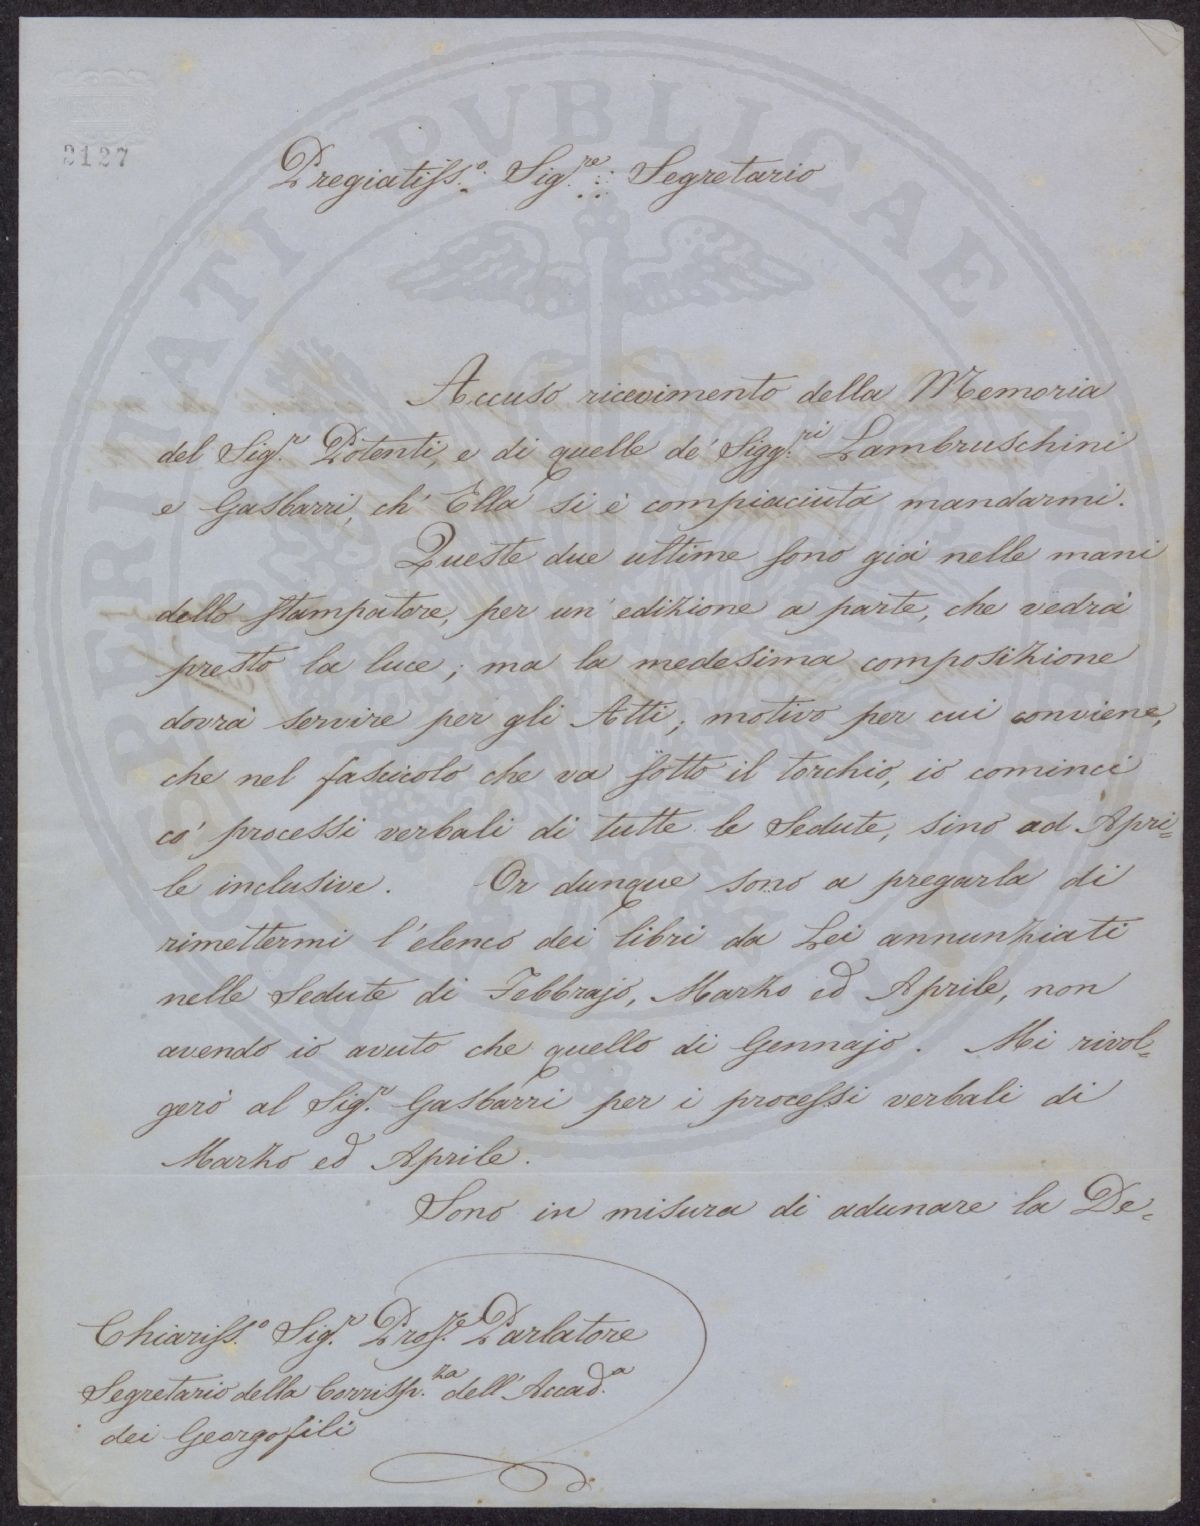 2127
Pregiatiss.o Sig.re Segretario
Accuso ricevimento della Memoria
del Sig.r Potenti, e di quelle de' Sigg.ri Lambruschini
e Gasbarri, ch' Ella si è compiaciuta mandarmi.
Queste due ultime sono già nelle mani
dello stampatore, per un' edizione a parte, che vedrà
presto la luce; ma la medesima composizione
dovrà servire per gli Atti; motivo per cui conviene,
che nel fascicolo che va sotto il torchio, io cominci
co' processi verbali di tutte le Sedute, sino ad Apri=
le inclusive. Or dunque sono a pregarla di
rimettermi l'elenco dei libri da Lei annunziati
nelle Sedute di Febbrajo, Marzo ed Aprile, non
avendo io avuto che quello di Gennajo. Mi rivol=
gerò al Sig.r Gasbarri per i processi verbali di
Marzo ed Aprile.
Sono in misura di adunare la De=
Chiariss.o Sig.r Prof.re Parlatore
Segretario della Corrisp.za dell' Accad.a
dei Georgofili